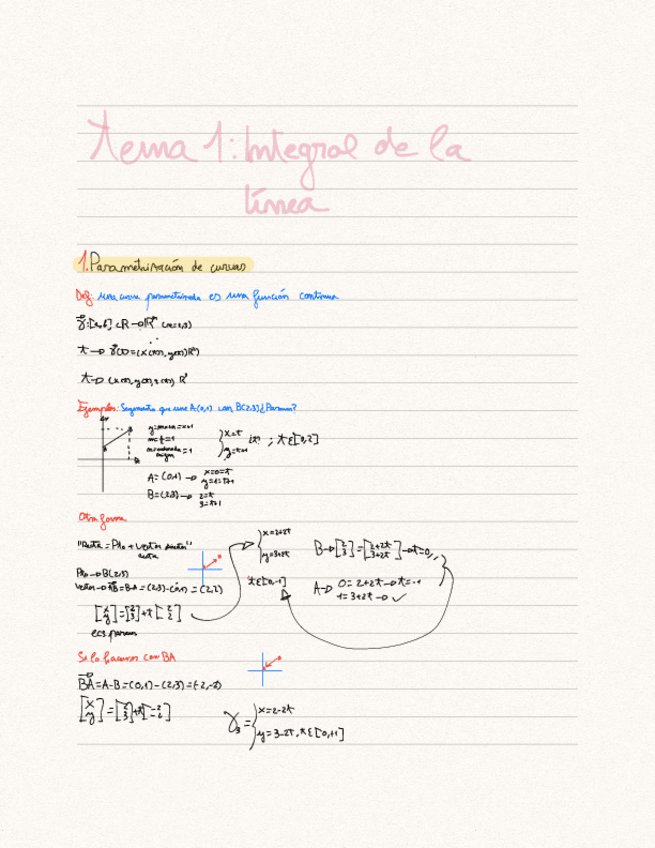 Tema 1: Integral de la
línea
1. Parametrización de curvas
Def: una curva parametrizada es una función continua
γ⃗: [a,b] ⊂ R → Rⁿ (n=2,3)
t → γ⃗(t) = (x(t), y(t)) R²)
t → (x(t), y(t), z(t)) R³
Ejemplo: Segmento que une A(0,1) con B(2,3) ¿Param?
y=mx+n=x+1
m=2/2=1
n=ordenada=1
origen
{x=t
y=t+1
; t∈[0,2]
A=(0,1) → x=0=t
y=1=t+1
B=(2,3) → 2=t
3=t+1
Otra forma
"Recta = Pto + vector director"
recta
Pto → B(2,3)
vector → AB=B-A=(2,3)-(0,1)=(2,2)
[x y]=[2 3]+t[2 2]
ecs param
{x=2+2t
y=3+2t
t∈[0,-1]
B→[2 3]=[2+2t 3+2t]→t=0
A→ 0=2+2t→t=-1
1=3+2t→✓
Si lo hacemos con BA
BA=A-B=(0,1)-(2,3)=(-2,-2)
[x y]=[2 3]+t[-2 -2]
γ₃={x=2-2t
y=3-2t, t∈[0,+1]